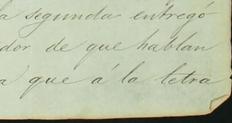 la segunda entregó
dor de que hablan
a que á la letra